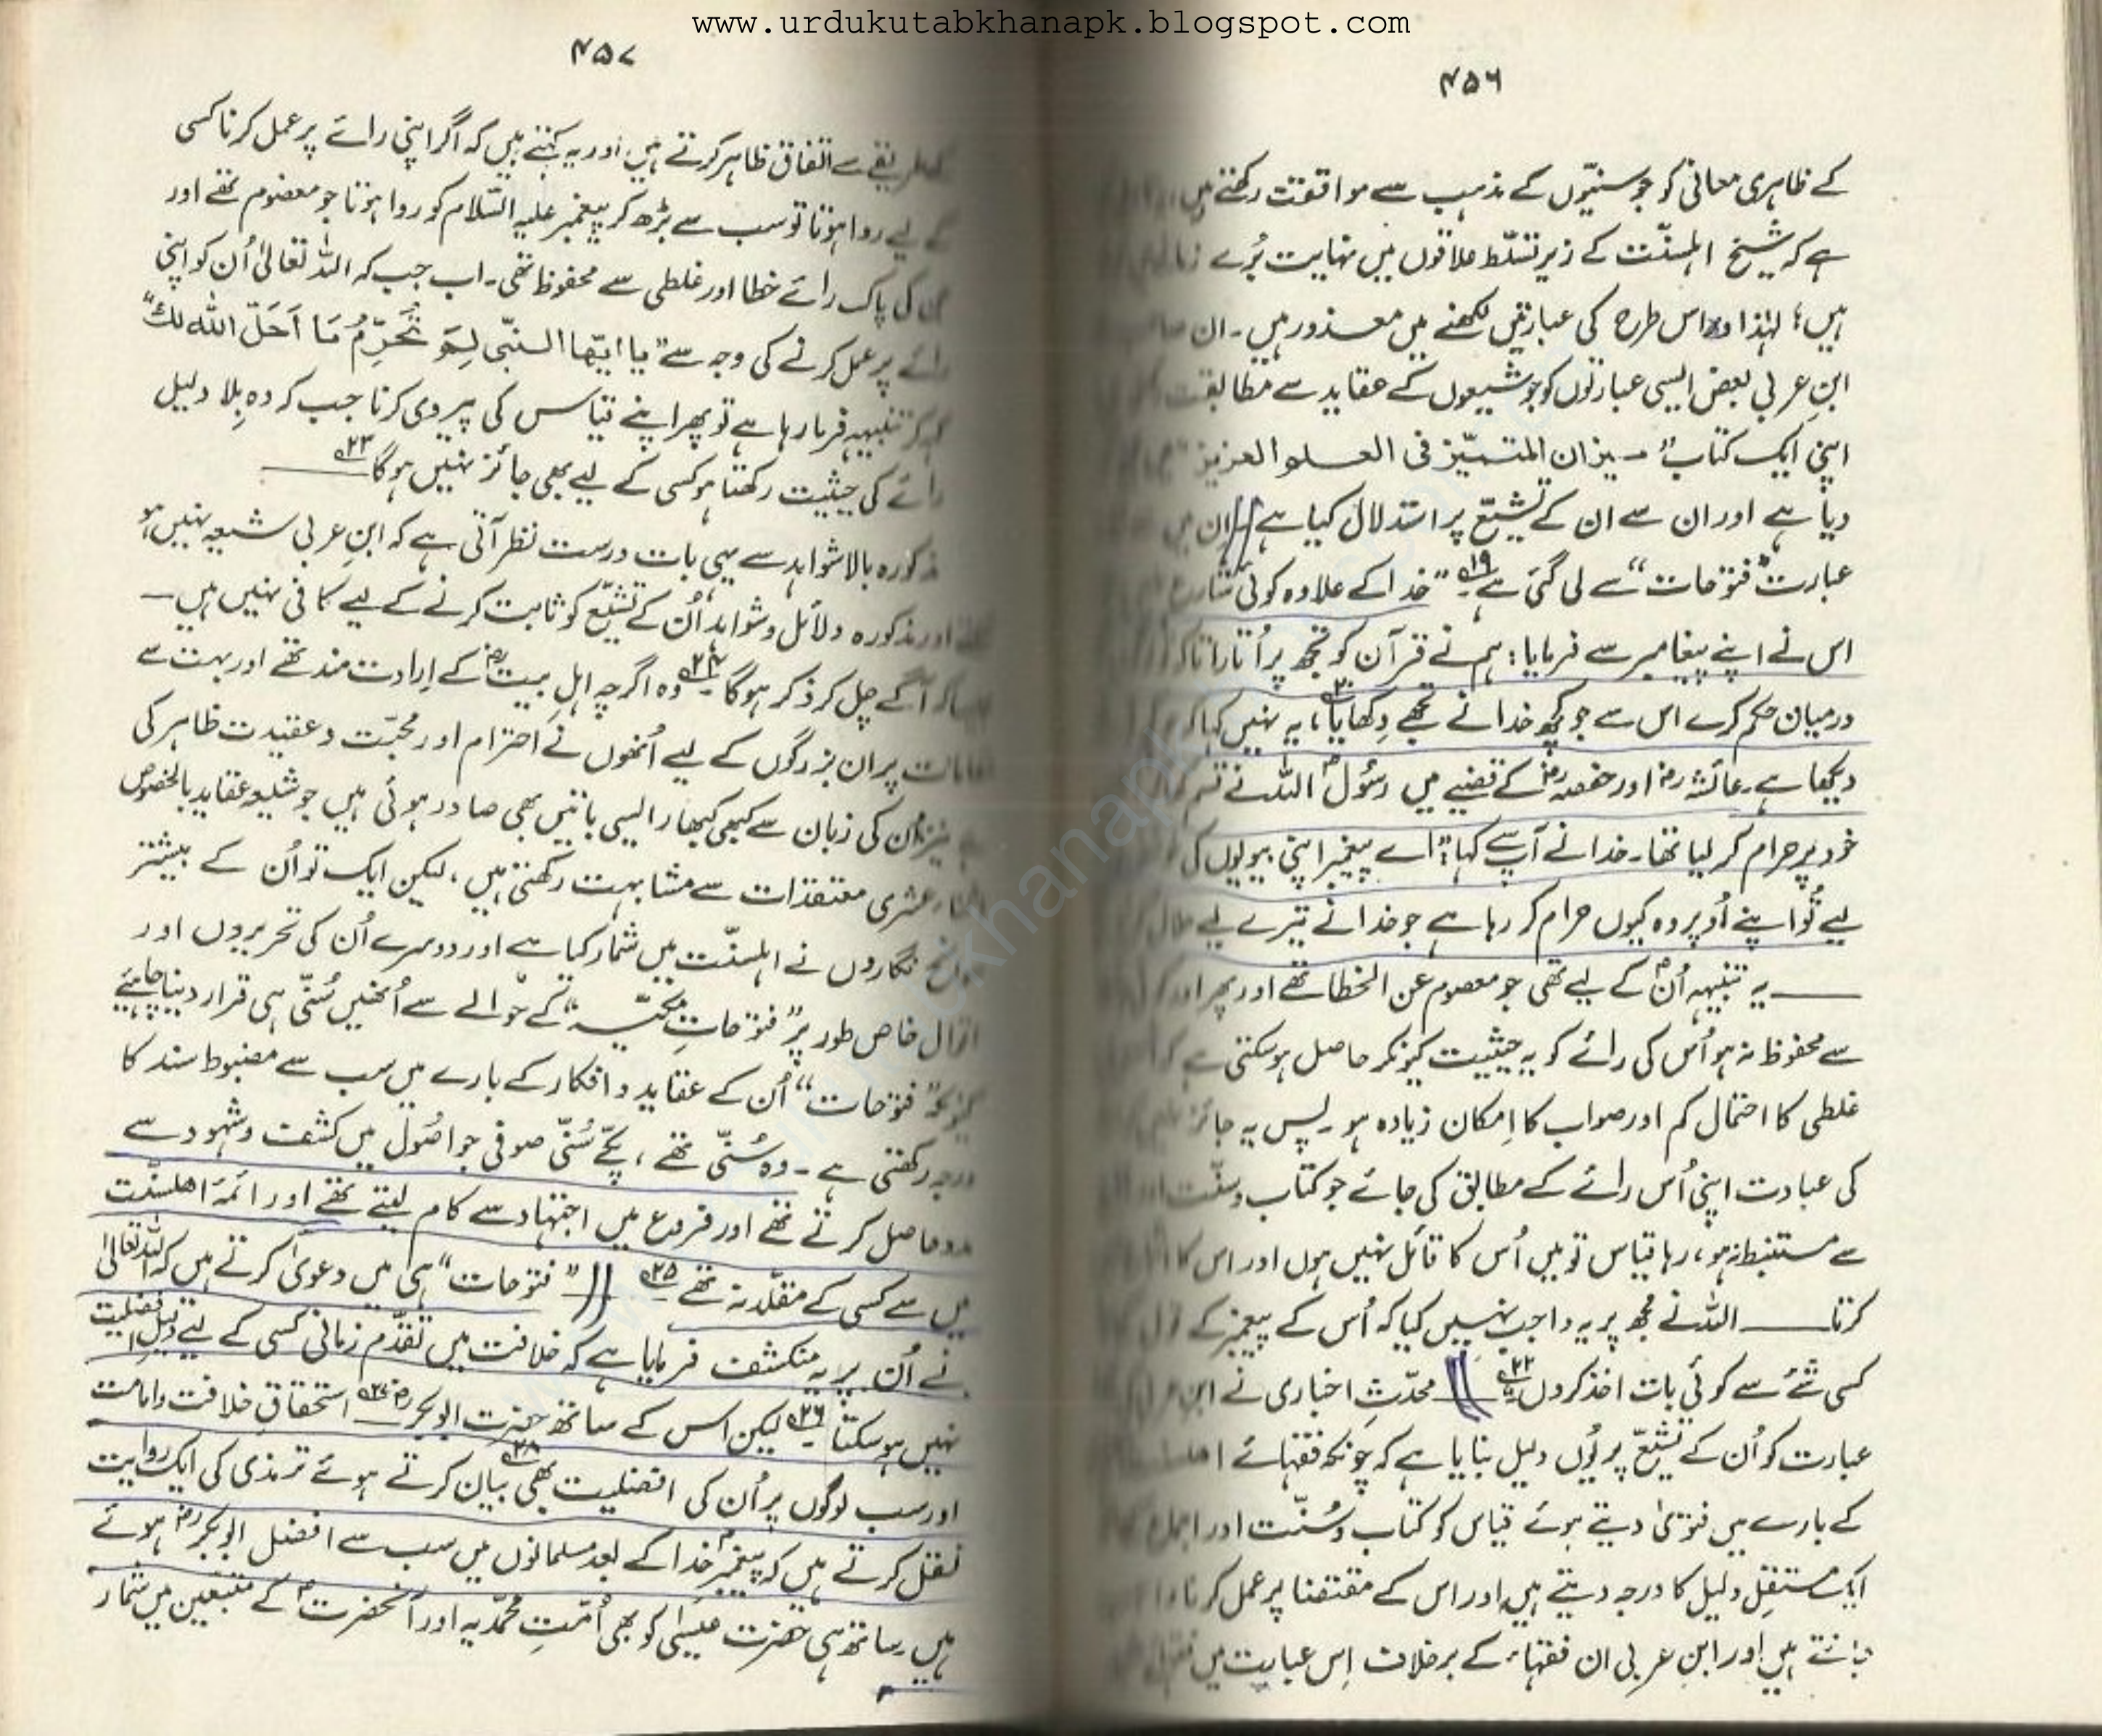 www.urdukutabkhanapk.blogspot.com
۴۵۶
کے ظاہری معانی کو جو سنیّوں کے مذہب سے موافقت رکھتے ہیں
ہے کہ شیخ اہلسنّت کے زیرِ تسلّط علاقوں میں نہایت بُرے
ہیں؛ لہٰذا وہ اس طرح کی عبارتیں لکھنے میں معذور ہیں۔ ان
ابنِ عربی بعض ایسی عبارتوں کو جو شیعوں کے عقاید سے مطابقت
اپنی ایک کتاب "میزان المتمیّز فی العلم العزیز"
دیا ہے اور ان سے ان کے تشیّع پر استدلال کیا ہے ان میں
عبارت "فتوحات" سے لی گئی ہے۱۹ "خدا کے علاوہ کوئی شارع
اس نے اپنے پیغامبر سے فرمایا: ہم نے قرآن کو تجھ پر اُتارا تاکہ
درمیان حکم کرے اس سے جو کچھ خدا نے تجھے دِکھایا۲۰، یہ نہیں کہا کہ
دیکھا ہے۔ عائشہؓ اور حفصہؓ کے قضیے میں رسُولؐ اللہ نے قسم
خود پر حرام کر لیا تھا۔ خدا نے آپؐ سے کہا: "اے پیغمبر اپنی بیویوں کی
لیے تُو اپنے اُوپر وہ کیوں حرام کر رہا ہے جو خدا نے تیرے لیے حلال
ــــ یہ تنبیہہ اُنؐ کے لیے تھی جو معصوم عن الخطا تھے اور پھر اور
سے محفوظ نہ ہو اُس کی رائے کو یہ حیثیت کیونکر حاصل ہو سکتی ہے کہ
غلطی کا احتمال کم اور صواب کا اِمکان زیادہ ہو۔ پس یہ جائز
کی عبادت اپنی اُس رائے کے مطابق کی جائے جو کتاب و سنّت اور
سے مستنبط نہ ہو، رہا قیاس تو میں اُس کا قائل نہیں ہوں اور اس کا
کرتا ــــ اللہ نے مجھ پر یہ واجب نہیں کیا کہ اُس کے پیغمبرؐ کے قول
کسی شئے سے کوئی بات اخذ کروں۲۲ محدّثِ اخباری نے ابن
عبارت کو اُن کے تشیّع پر یُوں دلیل بنایا ہے کہ چونکہ فقہائے
کے بارے میں فتویٰ دیتے ہوئے قیاس کو کتاب و سُنّت اور اجماع
ایک مستقِل دلیل کا درجہ دیتے ہیں اور اس کے مقتضا پر عمل کرنا
جانتے ہیں اور ابنِ عربی ان فقہاء کے برخلاف اِس عبارت میں
۴۵۷
طریقے سے اتفاق ظاہر کرتے ہیں، اور یہ کہتے ہیں کہ اگر اپنی رائے پر عمل کرنا کسی
کے لیے روا ہوتا تو سب سے بڑھ کر پیغمبر علیہ السّلام کو روا ہوتا جو معصوم تھے اور
کی پاک رائے خطا اور غلطی سے محفوظ تھی۔ اب جب کہ اللہ تعالیٰ اُن کو اپنی
رائے پر عمل کرنے کی وجہ سے "یا ایّھا النبّی لِمَ تُحَرِّمُ مَا اَحَلَّ اللّٰہ لکَ"
کہہ کر تنبیہہ فرما رہا ہے تو پھر اپنے قیاس کی پیروی کرنا جب کہ وہ بِلا دلیل
رائے کی حیثیت رکھتا ہو کسی کے لیے بھی جائز نہیں ہو گا۲۳
مذکورہ بالا شواہد سے یہی بات درست نظر آتی ہے کہ ابنِ عربی شیعہ نہیں ہو
اور مذکورہ دلائل و شواہد اُن کے تشیّع کو ثابت کرنے کے لیے کافی نہیں ہیں۔
آگے چل کر ذکر ہو گا۲۴ وہ اگرچہ اہلِ بیتؓ کے اِرادت مند تھے اور بہت سے
مقامات پر ان بزرگوں کے لیے اُنھوں نے احترام اور محبّت و عقیدت ظاہر کی
نیز اُن کی زبان سے کبھی کبھار ایسی باتیں بھی صادر ہوئی ہیں جو شیعہ عقاید بالخصوص
اثنا عشری معتقدات سے مشابہت رکھتی ہیں، لیکن ایک تو اُن کے بیشتر
سوانح نگاروں نے اہلسنّت میں شمار کیا ہے اور دوسرے اُن کی تحریروں اور
اقوال خاص طور پر "فتوحاتِ مکیّہ" کے حوالے سے اُنھیں سُنّی ہی قرار دینا چاہیئے
کیونکہ "فتوحات" اُن کے عقاید و افکار کے بارے میں سب سے مضبوط سند کا
درجہ رکھتی ہے۔ وہ سُنّی تھے، پکّے سُنّی صوفی جو اصُول میں کشف و شہود سے
مدد حاصل کرتے تھے اور فروع میں اجتہاد سے کام لیتے تھے اور ائمۂ اہلسنّت
میں سے کسی کے مقلّد نہ تھے۲۵ "فتوحات" ہی میں دعویٰ کرتے ہیں کہ اللہ تعالیٰ
نے اُن پر یہ منکشف فرمایا ہے کہ خلافت میں تقدّمِ زمانی کسی کے لیے دلیلِ افضلیت
نہیں ہو سکتا۲۶ لیکن اس کے ساتھ حضرت ابوبکرؓ۲۷ استحقاقِ خلافت و امامت
اور سب لوگوں پر اُن کی افضلیت بھی۲۸ بیان کرتے ہوئے ترمذی کی ایک روایت
نقل کرتے ہیں کہ پیغمبرؐ خدا کے بعد مسلمانوں میں سب سے افضل ابوبکرؓ ہوئے
ہیں۔ ساتھ ہی حضرت عیسٰیؑ کو بھی اُمّتِ محمّدیہ اور آنحضرتؐ کے متبعّین میں شمار